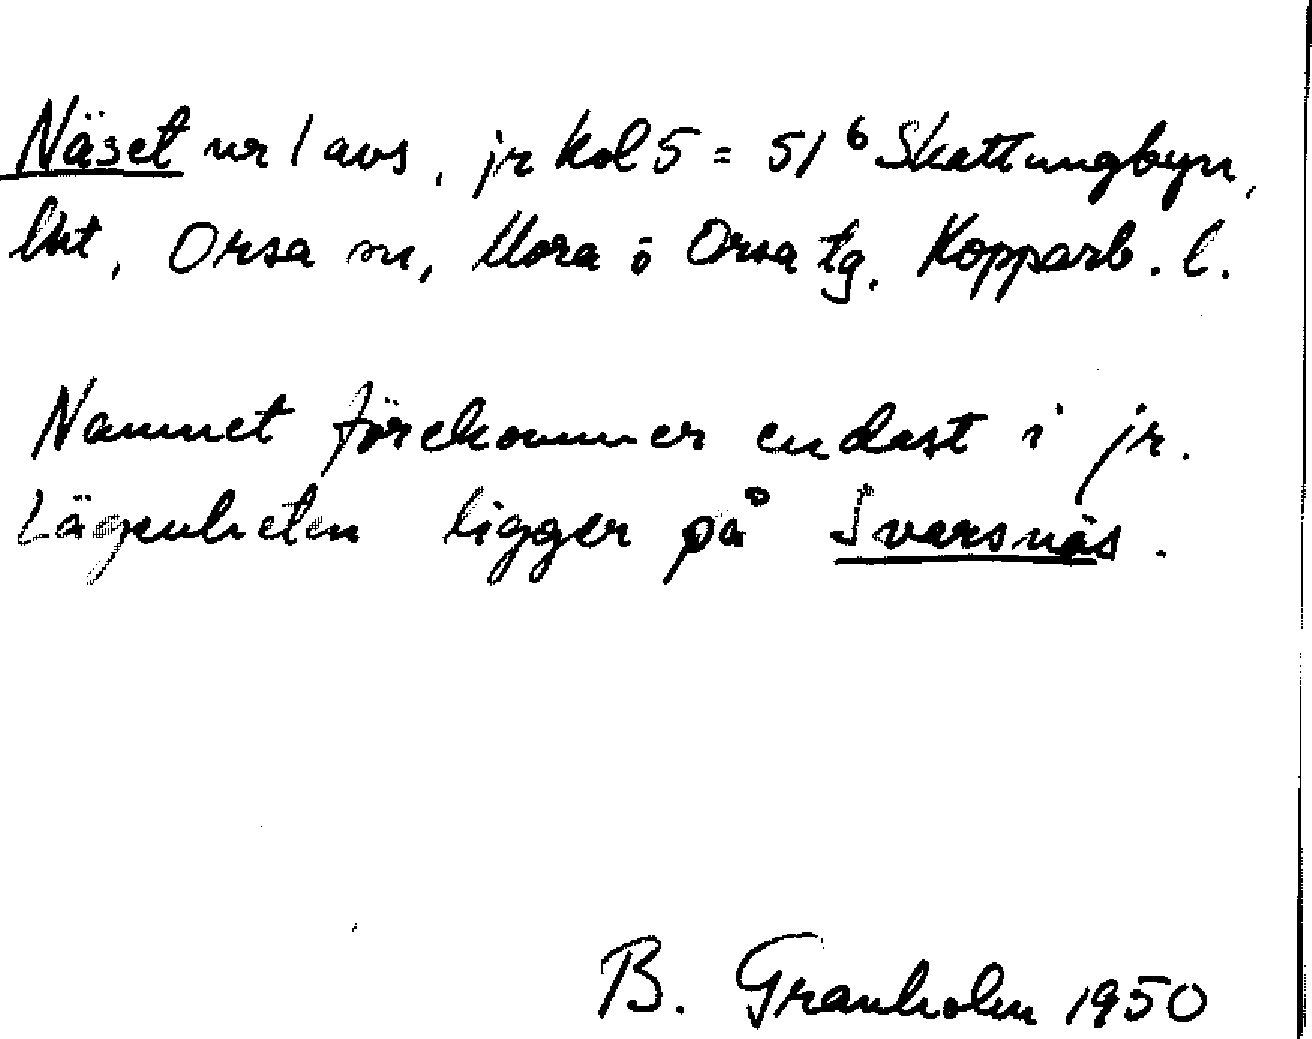 Näset nr 1 avs, jr kol 5 = 51⁶ Skattungbyn,
lht, Orsa sn, Mora o Orsa tg. Kopparb. l.
Namnet förekommer endast i jr.
Lägenheten ligger på Ivarsnäs.
B. Granholm 1950